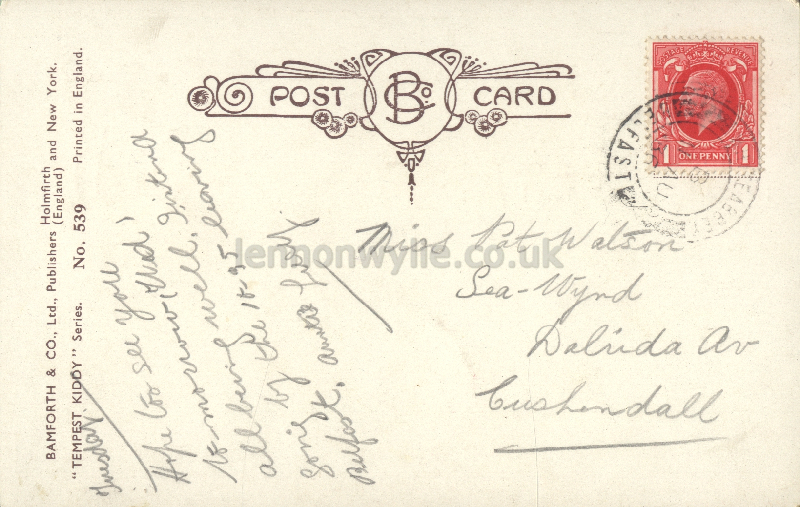 BAMFORTH & CO., Ltd., Publishers Holmfirth and New York.
(England)
"TEMPEST KIDDY" Series. No. 539 Printed in England.
POST CARD
B Co
POSTAGE REVENUE
1 ONE PENNY 1
BELFAST
lennonwylie.co.uk
Tuesday.
Hope too see you
to-morrow. Intend
all being well, leaving
by the 10-35
Belfast,
Miss Pat Watson
Sea-Wynd
Dalrida Av
Cushendall